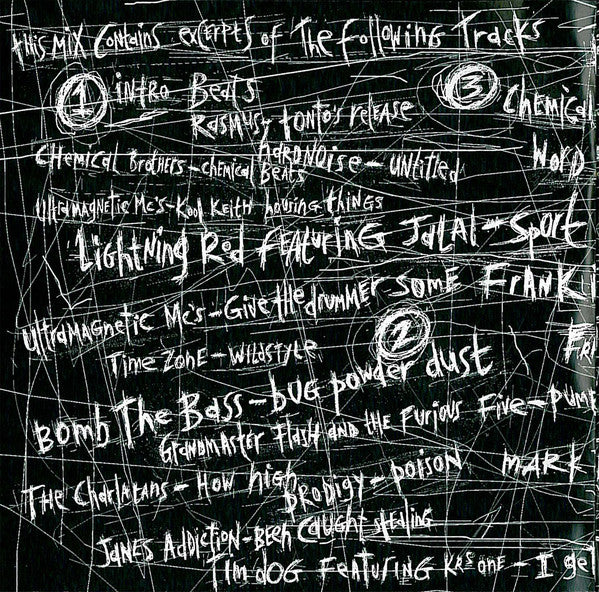 this Mix Contains excerpts of The Following Tracks
1 intro Beats
Rasmus, tonto's release
HARDNOISE – UNtitled
CHemical Brothers – chemical Beats
Ultramagnetic Mc's – Kool Keith housing things
Lightning Rod FEATURiNG Jalal – Sport
Ultramagnetic Mc's – Give the drummer some
Time Zone – Wildstyle
2
Bomb The Bass – bug powder dust
Grandmaster Flash and the Furious Five – Pump
The Charlatans – How high
prodigy – poison
Janes Addiction – Been Caught stealing
Tim dog Featuring KRS one – I get
3
Chemical
Word
Frank
FRi
Mark